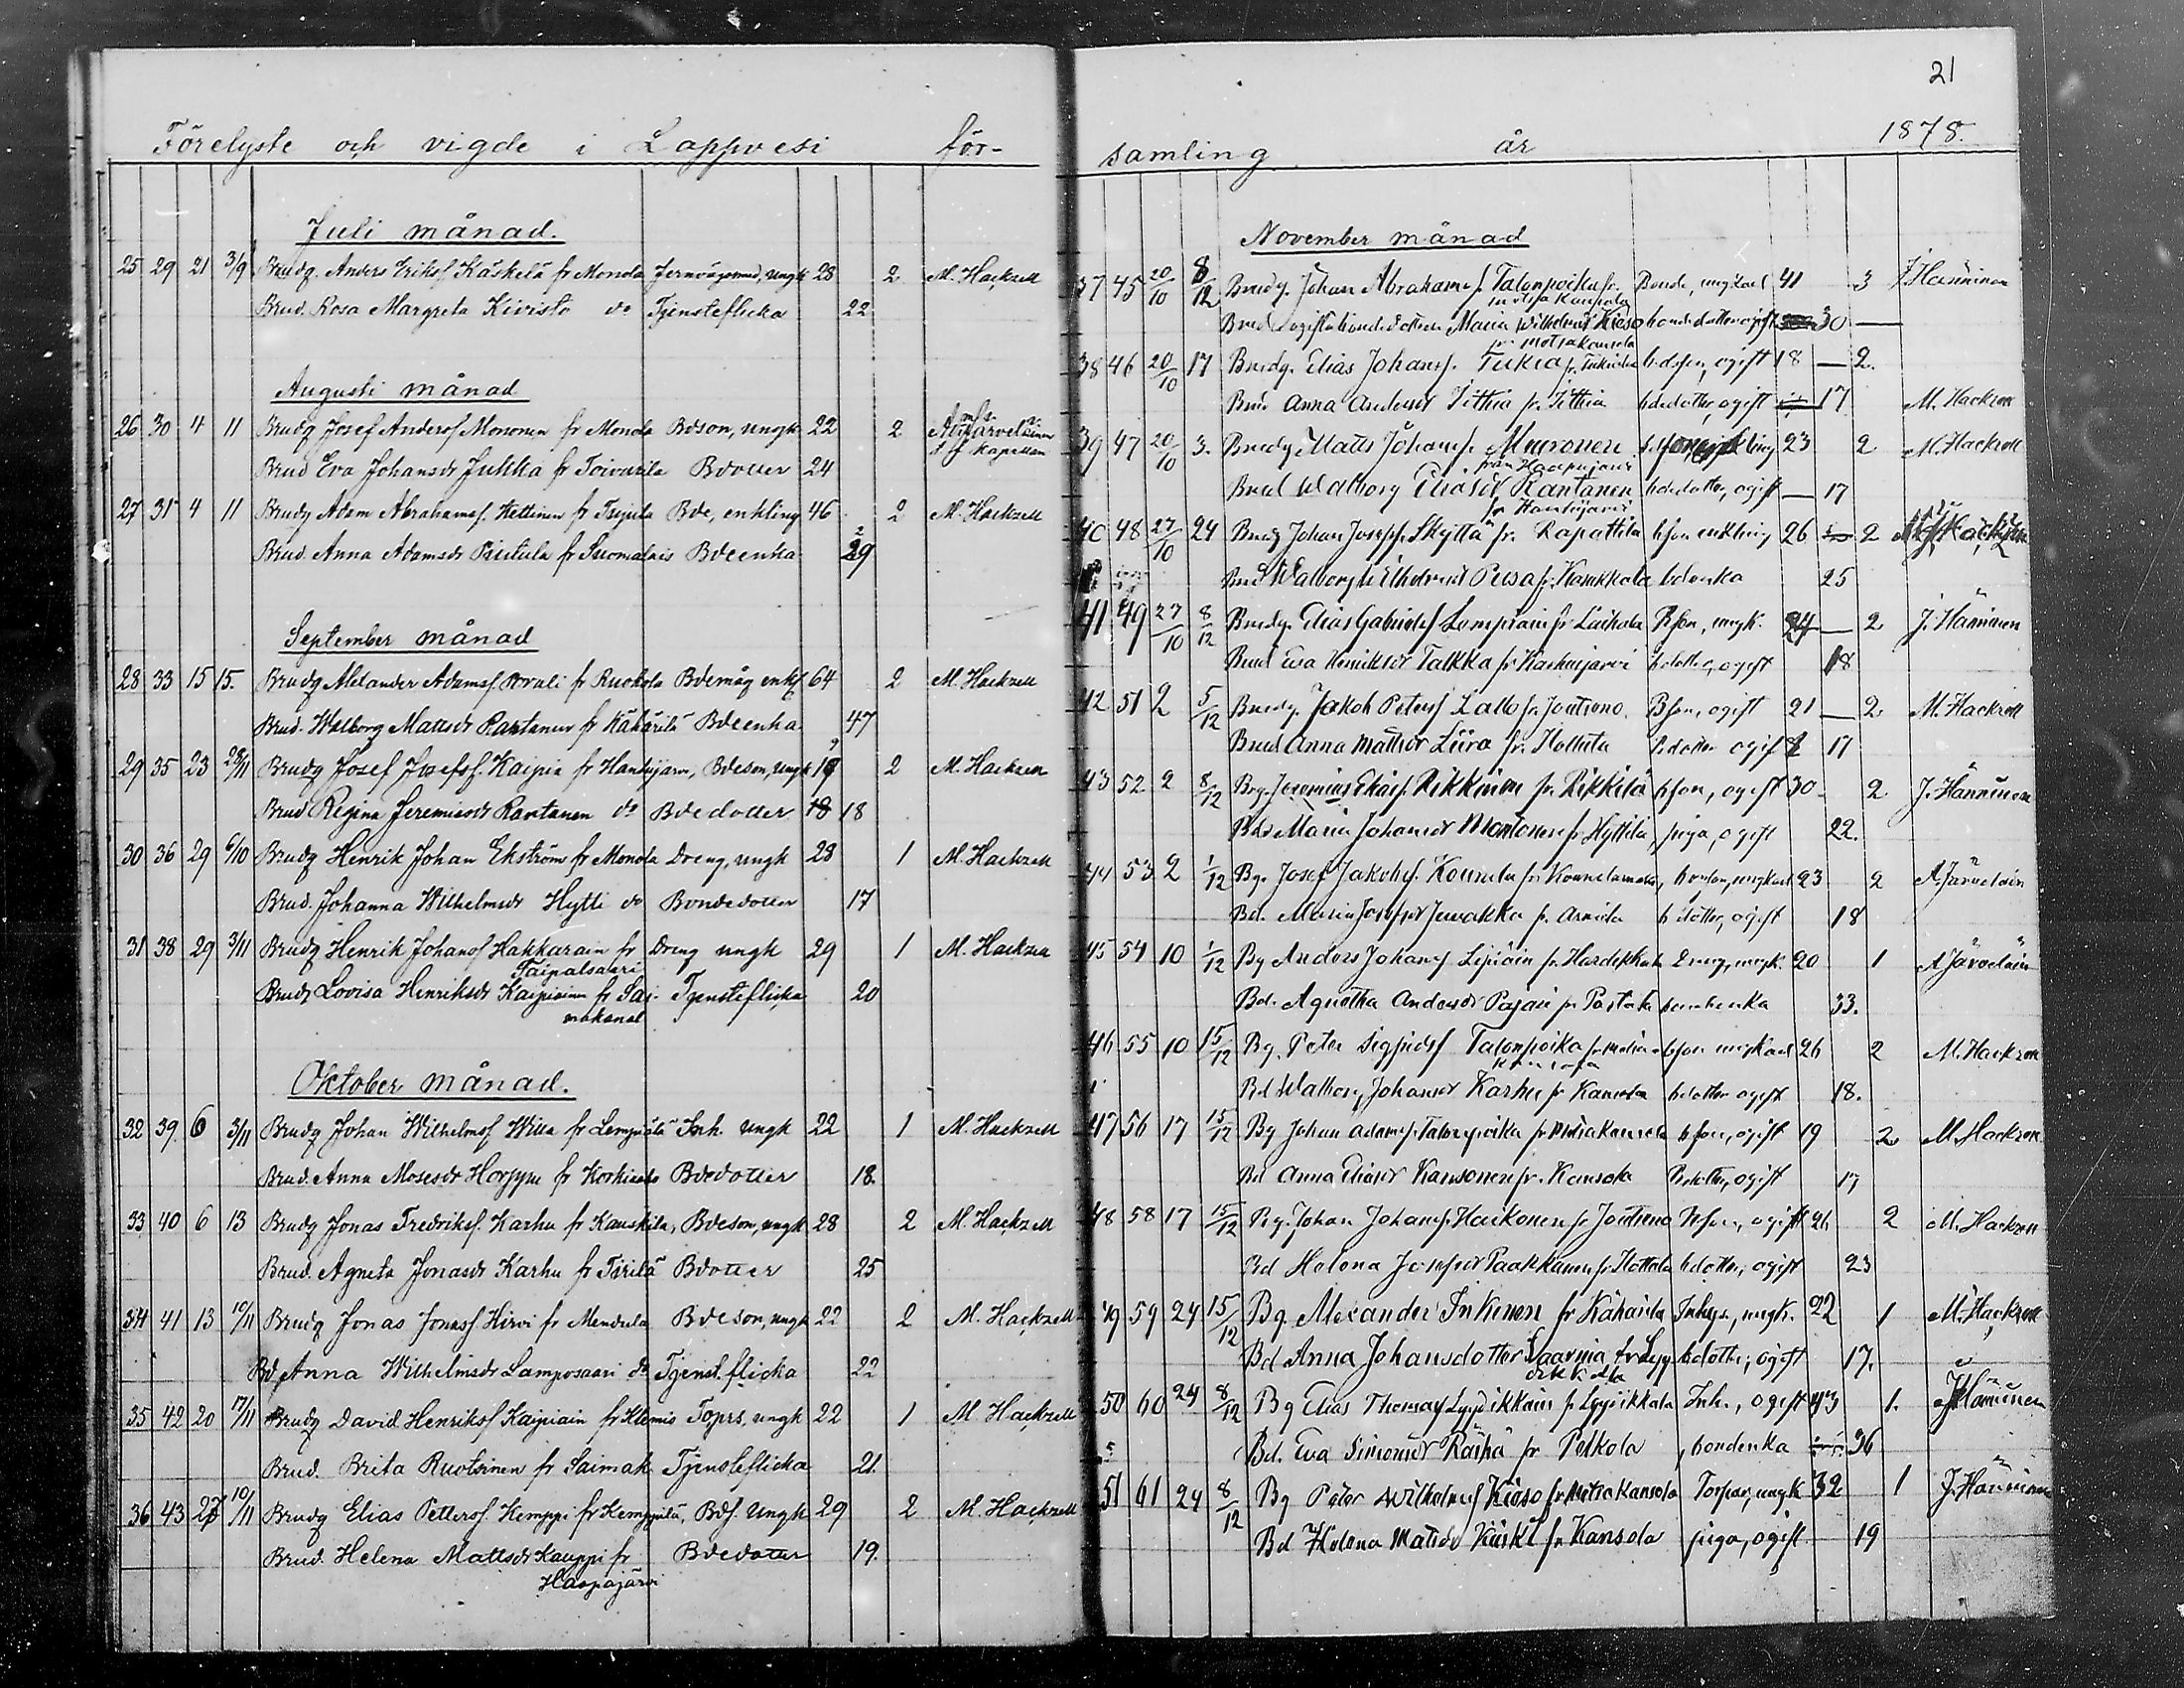 Förelyste och vigde i Lappvesi för-
Juli månad.
25 29 21 3/9 Brudg. Anders Eriksf Käskelä fr Monola Jernvägsmed, ungk 28 2 M. Hackzell
Brud. Rosa Margreta Kivistö do Tjensteflicka 22
Augusti månad
26 30 4 11 Brudg Josef Andersf Mononen fr Monola Bdson, ungk 22 2
kapellan
Brud Eva Johansdr Jukka fr Toivarila Bdotter 24
27 31 4 11 Brudg Adam Abrahamsf. Hettinen fr Bde, enkling 46 2 M. Hackzell
Brud. Anna Adamsdr fr Suomalais Bdeenka 29
September månad
28 33 15 15. Brudg Alexander Adamsf. fr Ruohola Bdemåg enkl 64 2 M. Hackzell
Brud. Walborg Mattsdr Rantanen fr Kähärilä Bdeenka 47
29 35 23 23/11 Brudg Josef Josefsf. Kaipia fr Hanhijärvi, Bdeson, ungk 19 2 M. Hackzell
Brud Regina Jeremiasdr Rantanen do Bdedotter 18 18
30 36 29 6/10 Brudg Henrik Johan Ekström fr Monola Dreng, ungk 28 1 M. Hackzell
Brud. Johanna Wilhelmsdr Hytti do Bondedotter 17
31 38 29 3/11 Brudg Henrik Johansf Hakkarain fr Dreng ungk 29 1 M. Hackzell
Taipalsaari
Brud Lovisa Henriksdr Kaipiainen fr Sai- Tjensteflicka 20
makanal
Oktober månad.
32 39 6 3/11 Brudg Johan Wilhelmsf Willa fr Lempälä Inh. ungk 22 1 M. Hackzell
Brud. Anna Mosesdr fr Bdedotter 18.
33 40 6 13 Brudg Jonas Fredriksf. Karhu fr Kauskila, Bdeson, ungk 28 2 M. Hackzell
Brud. Agneta Jonasdr Karhu fr Tirilä Bdotter 25
34 41 13 10/11 Brudg Jonas Jonasf Hirvi fr Mendula Bdeson, ungk 22 2 M. Hackzell
Bd Anna Wilhelmsdr Lamposaari do Tjenst.flicka 22
35 42 20 17/11 Brudg David Henriksf Kaipiain fr Klemis Toprs, ungk 22 1 M. Hackzell
Brud. Brita Ruotsinen fr Saimak Tjensteflicka 21.
36 43 27 10/11 Brudg Elias Pettersf. Kemppi fr Kemppilä, Bdf. Ungk 29 2 M. Hackzell
Brud. Helena Mattsdr Kauppi fr Bdedotter 19.
Haapajärvi
21
samling år 1878.
November månad
37 45 20/10 8/12 Brudg. Johan Abrahamsf. Talonpoika fr. Bonde, ungkarl 41 3 J Hänninen
Motsa Kansola
Brud Maria Wilhelmsdr Kieso bondedotter ogift 30 —
fr Motsakansola
38 46 20/10 17 Brudg. Elias Johansf. Tukia fr. Tukiala bdson, ogift 18 — 2.
Brud Anna Andersdr Ihttia fr. Ihttia bdedotter, ogift 17 M. Hackzell
39 47 20/10 3. Brudg Matts Johansf. Muronen 23 2 M. Hackzell
från Haapajärvi
Brud Walborg Eliasdr Rantanen bdedotter, ogift — 17
fr Hanhijärvi
40 48 27/10 24 Brudg Johan Josefsf. Skyttä fr. Rapattila bson enkling 26 2
Brud Walborg Wilhelmsdr Pusa fr. Karkkola bdenka 25
41 49 27/10 8/12 Brudg. Elias Gabrielsf fr Bson, ungk. 24 — 2 J. Hänninen
Brud Eva Henriksdr Talkka fr Karhusjärvi bdotter, ogift 18
42 51 2 5/12 Brudg. Jakob Petersf Lallo fr. Joutseno. Bson, ogift 21 — 2 M. Hackzell
Brud Anna Mattsdr Liira fr. bdotter ogift 17
43 52 2 8/12 Brg. Jeremias Eliasf. Rikkinen fr. Rikkilä bson, ogift 30 2 J. Hänninen
Bdr Maria Johansdr Montonen fr Hyttilä, piga, ogift 22.
44 53 2 1/12 Bg. Josef Jakobsf. Kounela fr. bonson, ungkarl 23 2 A. Järveläin
Bd. Maria Josefsdr Juvakka fr. bdotter, ogift 18
45 54 10 1/12 Bg Anders Johansf Lipiäin fr. Dreng, ungk. 20 1 A Järveläin
Bd. Agnetha Andersdr Pajari fr bondenka 33.
46 55 10 15/12 Bg. Peter Sigfridsf Talonpoika fr Motsa- bson ungkarl 26 2 M. Hackzell
kansola
Bd Walborg Johansdr Karhu fr Kansola bdotter ogift 18.
47 56 17 15/12 Bg Johan Adamsf. Talonpoika fr Motsakansola bson, ogift 19 2 M. Hackzell
Bd Anna Eliasdr Kansonen fr. Kansola bdotter, ogift 17
48 58 17 15/12 Bg. Johan Johansf. Haikonen fr Joutseno bson, ogift 21 2 M. Hackzell
Bd Helena Josefsdr Paakkunen fr. bdotter, ogift 23
49 59 24 15/12 Bg. Alexander Inkinen fr Kähärilä Inhys, ungk. 22 1 M. Hackzell
Bd Anna Johansdotter fr Lyy bdotter, ogift 17.
dikkala
50 60 24 8/12 Bg Elias Thomasf Lyydikkäin fr Lyydikkala Inh., ogift 43 1. J Hänninen
Bd. Eva Simonsdr Räihä fr Pelkola, bondenka 36
51 61 24 8/12 Bg Peter Wilhelmsf Kieso fr Motsakansola Torpar, ungk 32 1 J. Hänninen
Bd Helena Matsdr fr Kansola piga, ogift 19